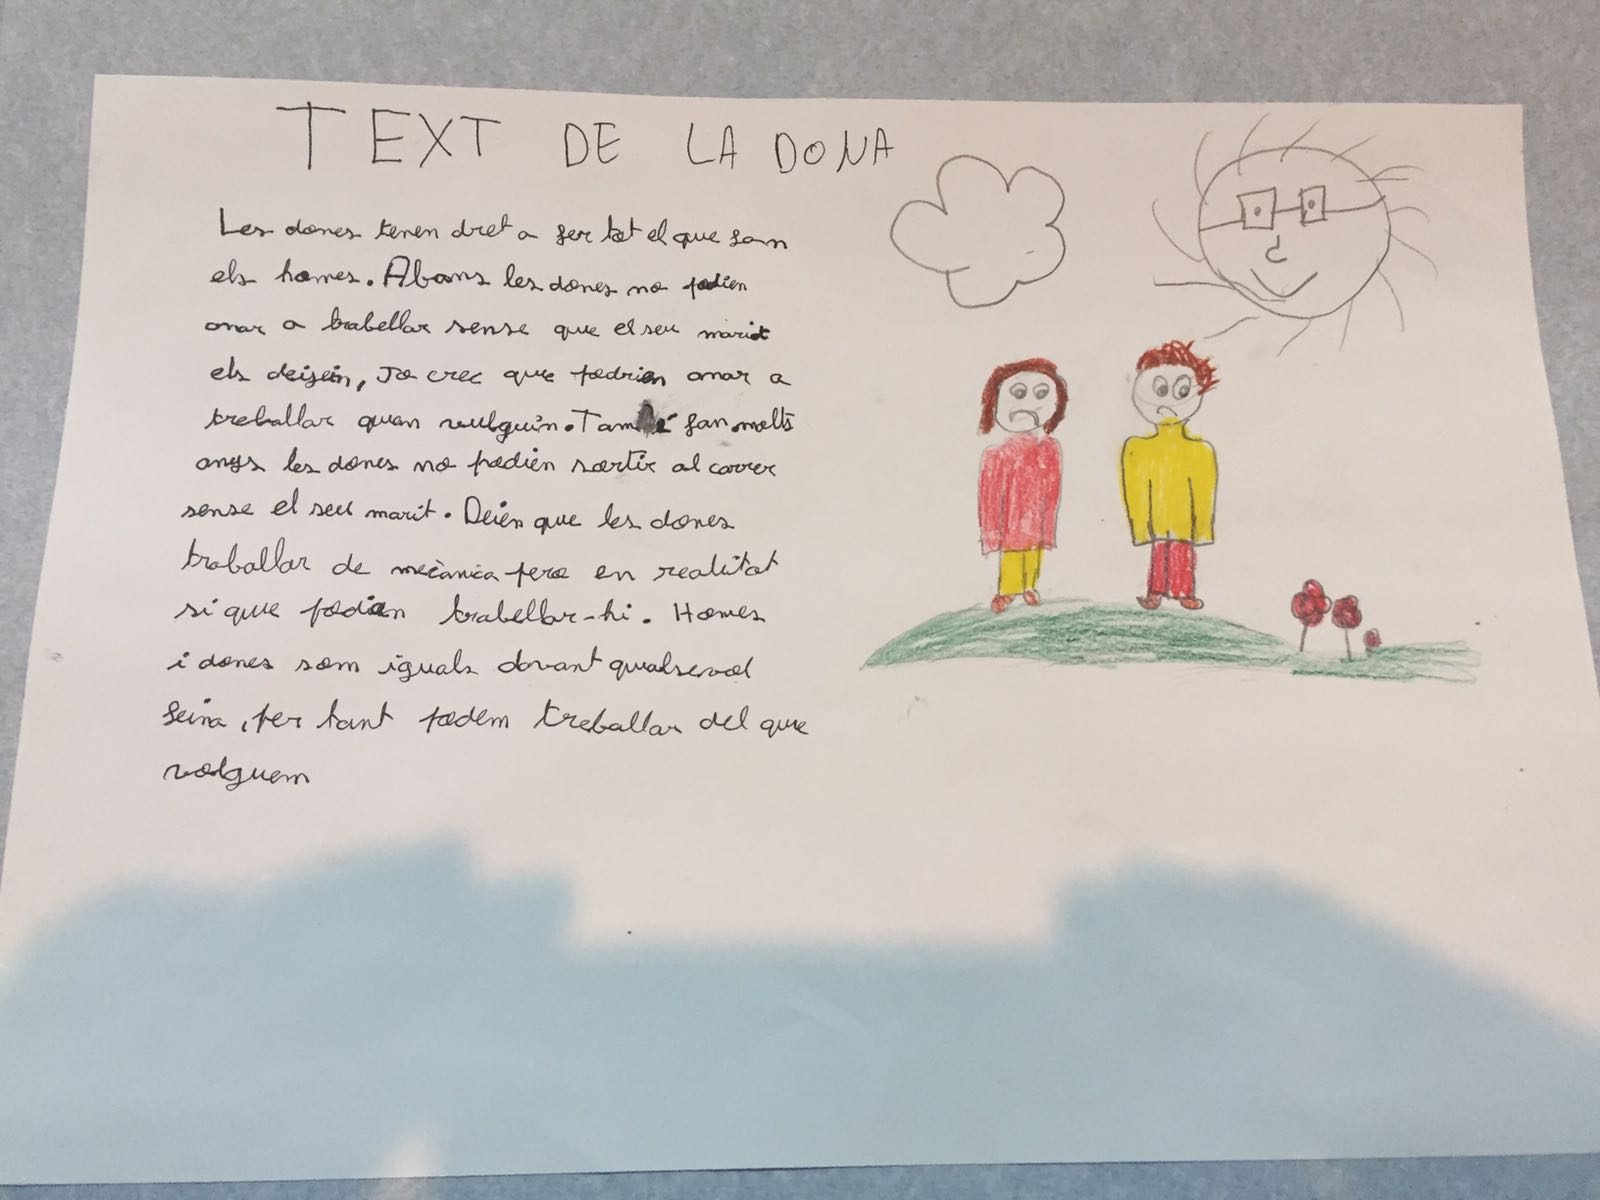 TEXT DE LA DONA
Les dones tenen dret a fer tot el que fan
els homes. Abans les dones no podien
anar a traballar sense que el seu marit
els deixin, Jo crec que podrien anar a
treballar quan vulguin. També fan molts
anys les dones no podien sortir al carrer
sense el seu marit. Deien que les dones
traballar de mecànica pero en realitat
si que podien traballar-hi. Homes
i dones som iguals davant qualsevol
feina, per tant podem treballar del que
volguem